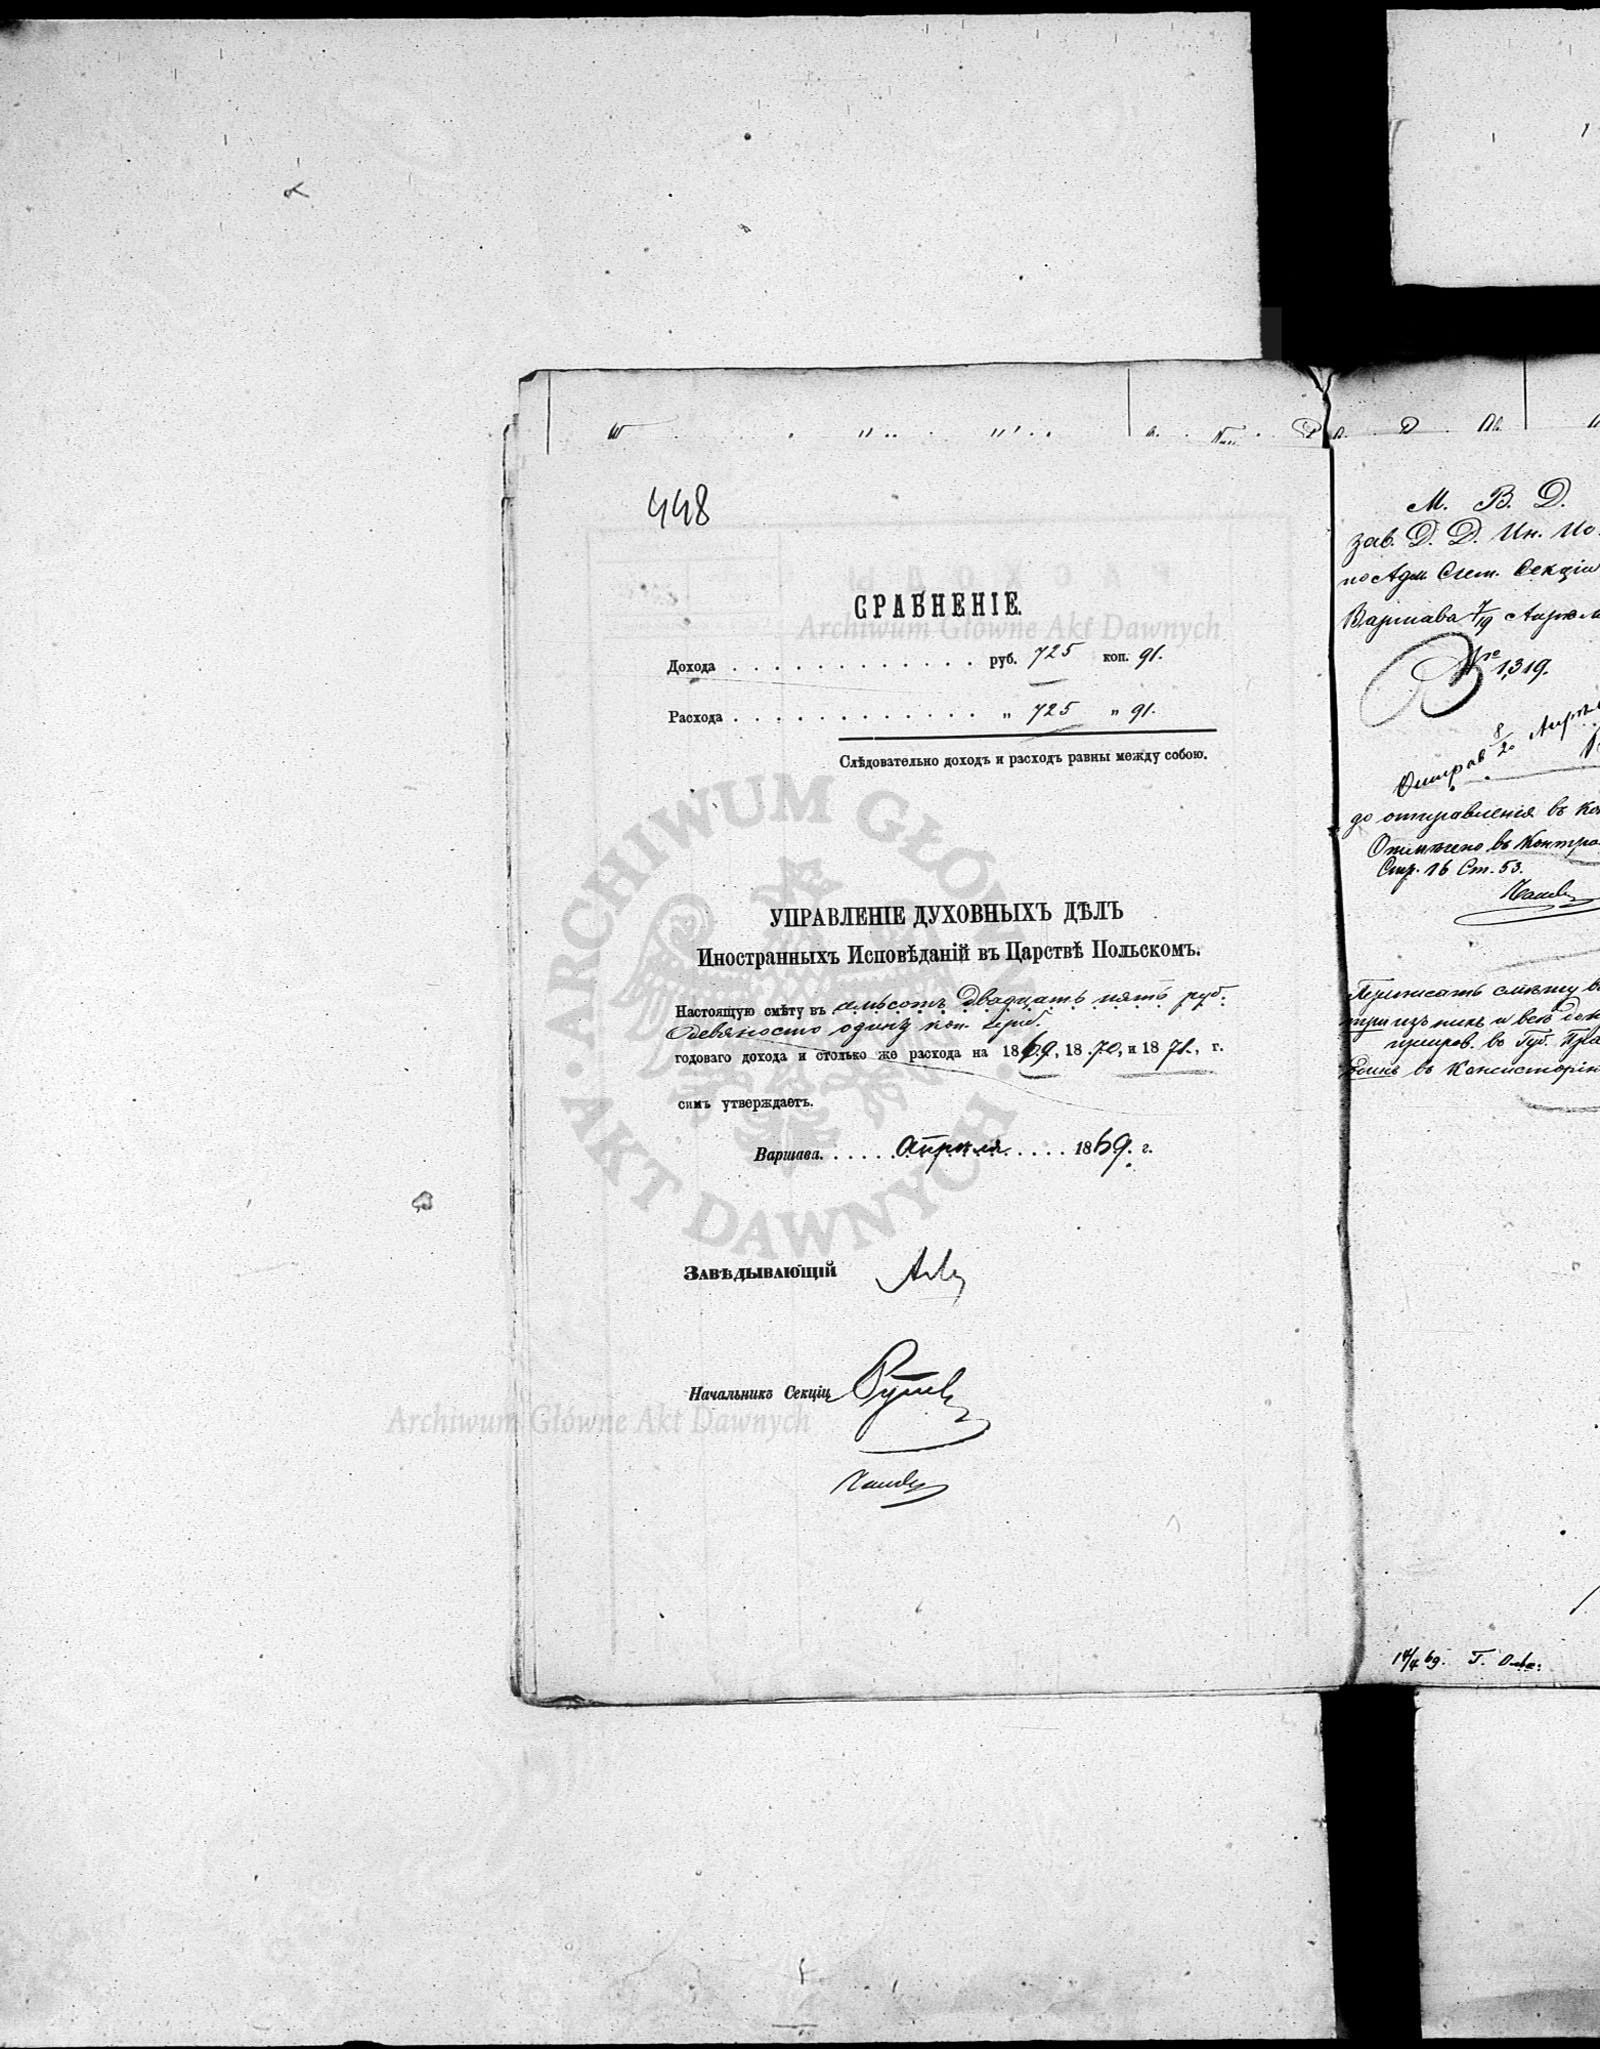 448
СРАВНЕНІЕ.
Archiwum Główne Akt Dawnych
Дохода . . . . . . . . . . . . . руб. 725 коп. 91.
Расхода . . . . . . . . . . . . . „ 725 „ 91.
Слѣдовательно доходъ и расходъ равны между собою.
ARCHIWUM GŁÓWNE AKT DAWNYCH
УПРАВЛЕНІЕ ДУХОВНЫХЪ ДѢЛЪ
Иностранныхъ Исповѣданій въ Царствѣ Польскомъ.
Настоящую смѣту въ семьсотъ двадцать пять руб.
девяносто одинъ коп. сереб.
годоваго дохода и столько же расхода на 1869, 1870, и 1871, г.
симъ утверждаетъ.
Варшава. . . . . Апрѣля . . . . 1869. г.
Завѣдывающій
Начальникъ Секціи
Archiwum Główne Akt Dawnych
М. В. Д.
зав. Д. Д. Ин. Ис.
по Адм. Счет. Секціи
Варшава 7/19 Апрѣл
№ 1319.
Отправ 8/20 Апрѣл
до отправленія въ
Отмѣчено въ Контро
Стр. 16 Ст. 53.
Переписать смѣту въ
три экз
въ Губ. Пра
въ Консисторію